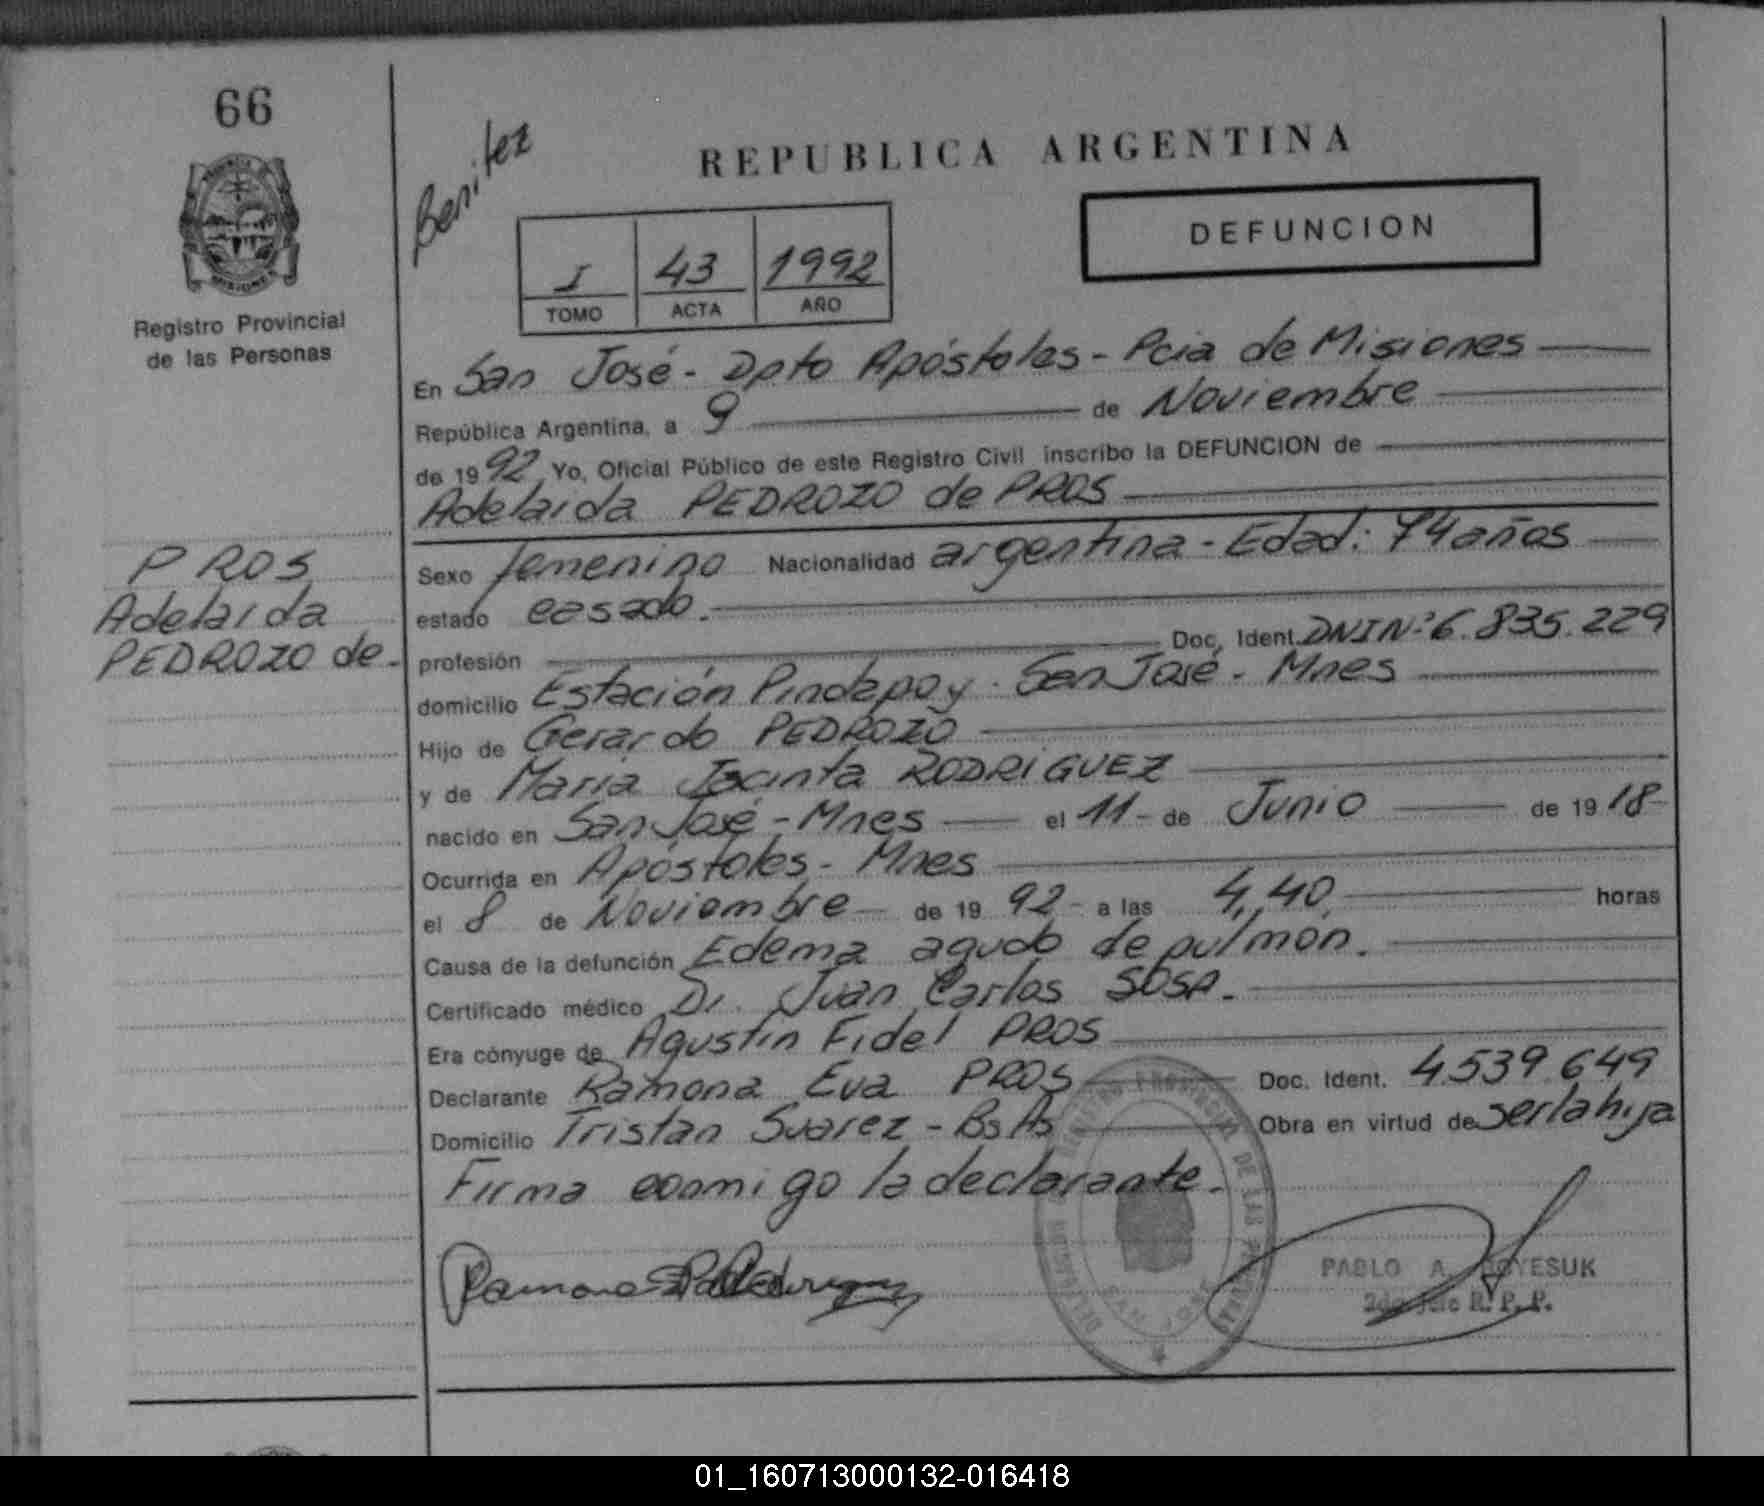 66
Benitez
REPUBLICA ARGENTINA
PROVINCIA
MISIONES
Registro Provincial
de las Personas
I 43 1992
TOMO ACTA AÑO
DEFUNCION
En San José - Dpto Apóstoles - Pcia de Misiones
República Argentina, a 9 de Noviembre
de 1992 Yo, Oficial Público de este Registro Civil inscribo la DEFUNCION de
Adelaida PEDROZO de PROS
PROS
Adelaida
PEDROZO de
Sexo femenino Nacionalidad argentina - Edad: 74 años
estado casado.
profesión Doc. Ident. DNI Nº 6.835.229
domicilio Estación Pindapoy - San José - Mnes
Hijo de Gerardo PEDROZO
y de María Jacinta RODRIGUEZ
nacido en San José - Mnes el 11 - de Junio de 1918
Ocurrida en Apóstoles - Mnes
el 8 de Noviembre de 1992 - a las 4,40 horas
Causa de la defunción Edema agudo de pulmón.
Certificado médico Dr. Juan Carlos SOSA.
Era cónyuge de Agustín Fidel PROS
Declarante Ramona Eva PROS Doc. Ident. 4.539.649
Domicilio Tristan Suarez - Bs As Obra en virtud de ser la hija
Firma conmigo la declarante.
Ramona
REGISTRO PROVINCIAL DE LAS PERSONAS
DELEGACION
SAN JOSE
PABLO A.
2do Jefe R. P. P.
01_160713000132-016418